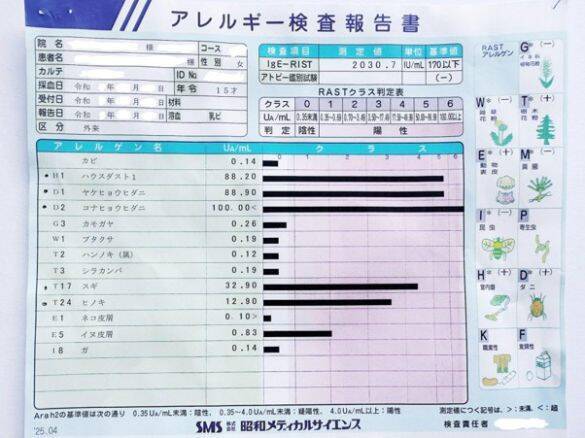 アレルギー検査報告書
院名 様 コース
患者名 様 性別 女
カルテ ID No
採血日 令和 年 月 日 年令 15才
受付日 令和 年 月 日 材料
報告日 令和 年 月 日 溶血 乳び
区分 外来
検査項目 測定値 単位 基準値
IgE-RIST 2030.7 IU/mL 170以下
アトピー鑑別試験 (−)
RASTクラス判定表
クラス 0 1 2 3 4 5 6
UA/mL 0.35未満 0.35-0.69 0.70-3.49 3.50-17.49 17.50-49.99 50.00-99.99 100.00以上
判定 陰性 陽性
アレルゲン名 UA/mL クラス
0 1 2 3 4 5 6
カビ 0.14
* H1 ハウスダスト1 88.20
* D1 ヤケヒョウヒダニ 88.90
* D2 コナヒョウヒダニ 100.00<
G3 カモガヤ 0.26
W1 ブタクサ 0.19
T2 ハンノキ(属) 0.12
T3 シラカンバ 0.19
T17 スギ 32.90
* T24 ヒノキ 12.90
E1 ネコ皮屑 0.10>
E5 イヌ皮屑 0.83
I8 ガ 0.14
RAST アレルゲン
G* (−) イネ科植物花粉
W* (−) 雑草花粉
T* (+) 樹木花粉
E* (+) 動物表皮
M* (−) 真菌
I* (−) 昆虫
P 寄生虫
H* (+) 室内塵
D* (+) ダニ
K 職業性
F 食餌性
Arah2の基準値は次の通り 0.35UA/mL未満:陰性, 0.35~4.0UA/mL未満:疑陽性, 4.0UA/mL以上:陽性
測定値につく記号は、>:未満、<:超
'25.04
SMS 株式会社 昭和メディカルサイエンス
検査責任者